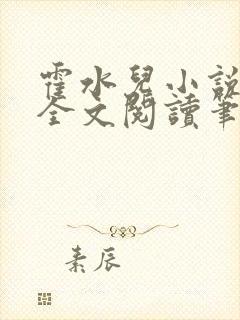 霍水兒小說
全文閱讀筆
素辰